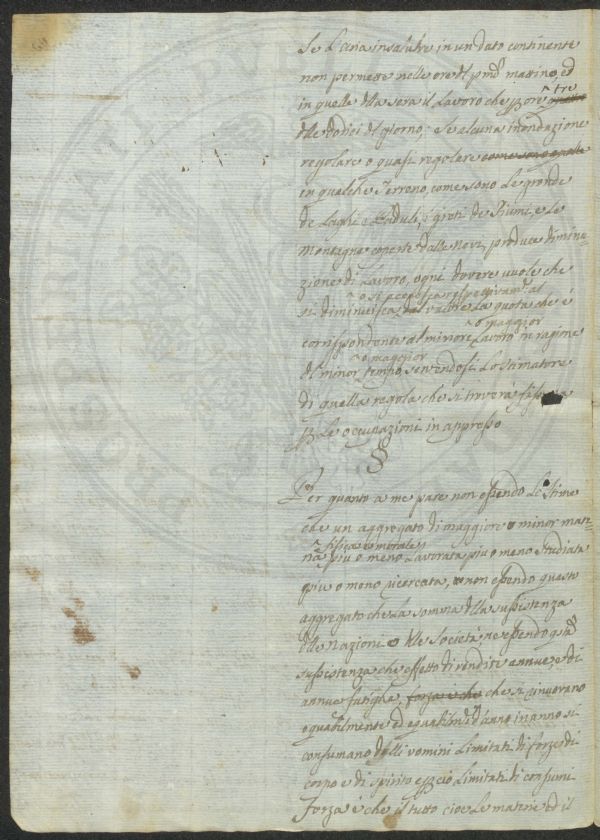 Se l'aria insalubre in un dato continente
non permette nelle ore del pmo mattino, ed
in quelle della sera il Lavoro che per ore tre
delle dodici del giorno; Se alcuna inondazione
regolare o quasi regolare
in qualche Terreno, come sono le gronde
de Laghi e Paduli, i greti de Fiumi, e le
montagne coperte dalle nevi, produce diminu
zione di Lavoro, ogni dovere vuole che
o si accresca respettivamte al
si diminuisca, dal valore la quota che é
o maggior
corrispondente al minore Lavoro in ragione
o maggior
del minor tempo, servendosi lo stimatore
di quella regola che si troverà fissata
per le occupazioni in appresso
§
Per quanto a me pare non essendo le stime
che un aggregato di maggiore o minor mate=
fisica e morale
ria più o meno Lavorata più o meno studiata
più o meno ricercata, e non essendo questo
aggregato che la somma della sussistenza
delle nazioni o delle Società, ne essendo qsta
sussistenza che effetto di rendite annue, e di
annue fatighe, forza è che che si rinnovano
equabilmente ed egualmte d'anno in anno si
consumano dalli uomini Limitati di forze di
corpo e di spirito e perciò limitati di consumi
Forza é che il tutto cioe le materie ed il